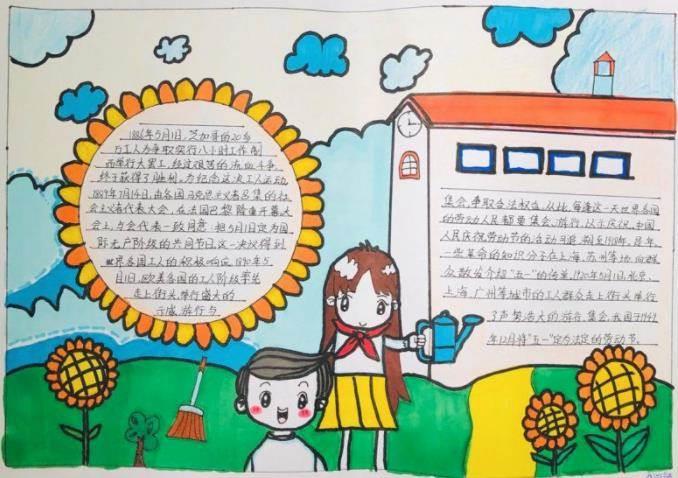 1886年5月1日,芝加哥的20多
万工人为争取实行八小时工作制
而举行大罢工,经过艰苦的流血斗争,
终于获得了胜利,为纪念这次工人运动,
1889年7月14日,由各国马克思主义者召集的社
会主义者代表大会,在法国巴黎隆重开幕,大
会上,与会代表一致同意:把5月1日定为国
际无产阶级的共同节日,这一决议得到
世界各国工人的积极响应,1890年5
月1日,欧美各国的工人阶级率先
走上街头,举行盛大的
示威游行与
集会,争取合法权益,从此,每逢这一天世界各国
的劳动人民都要集会、游行,以示庆祝.中国
人民庆祝劳动节的活动可追溯至1918年,是年,
一些革命的知识分子在上海、苏州等地向群
众散发介绍"五一"的传单,1920年5月1日,北京、
上海、广州等城市的工人群众走上街头举行
了声势浩大的游行、集会,我国于1949
年12月将"五一"定为法定的劳动节.